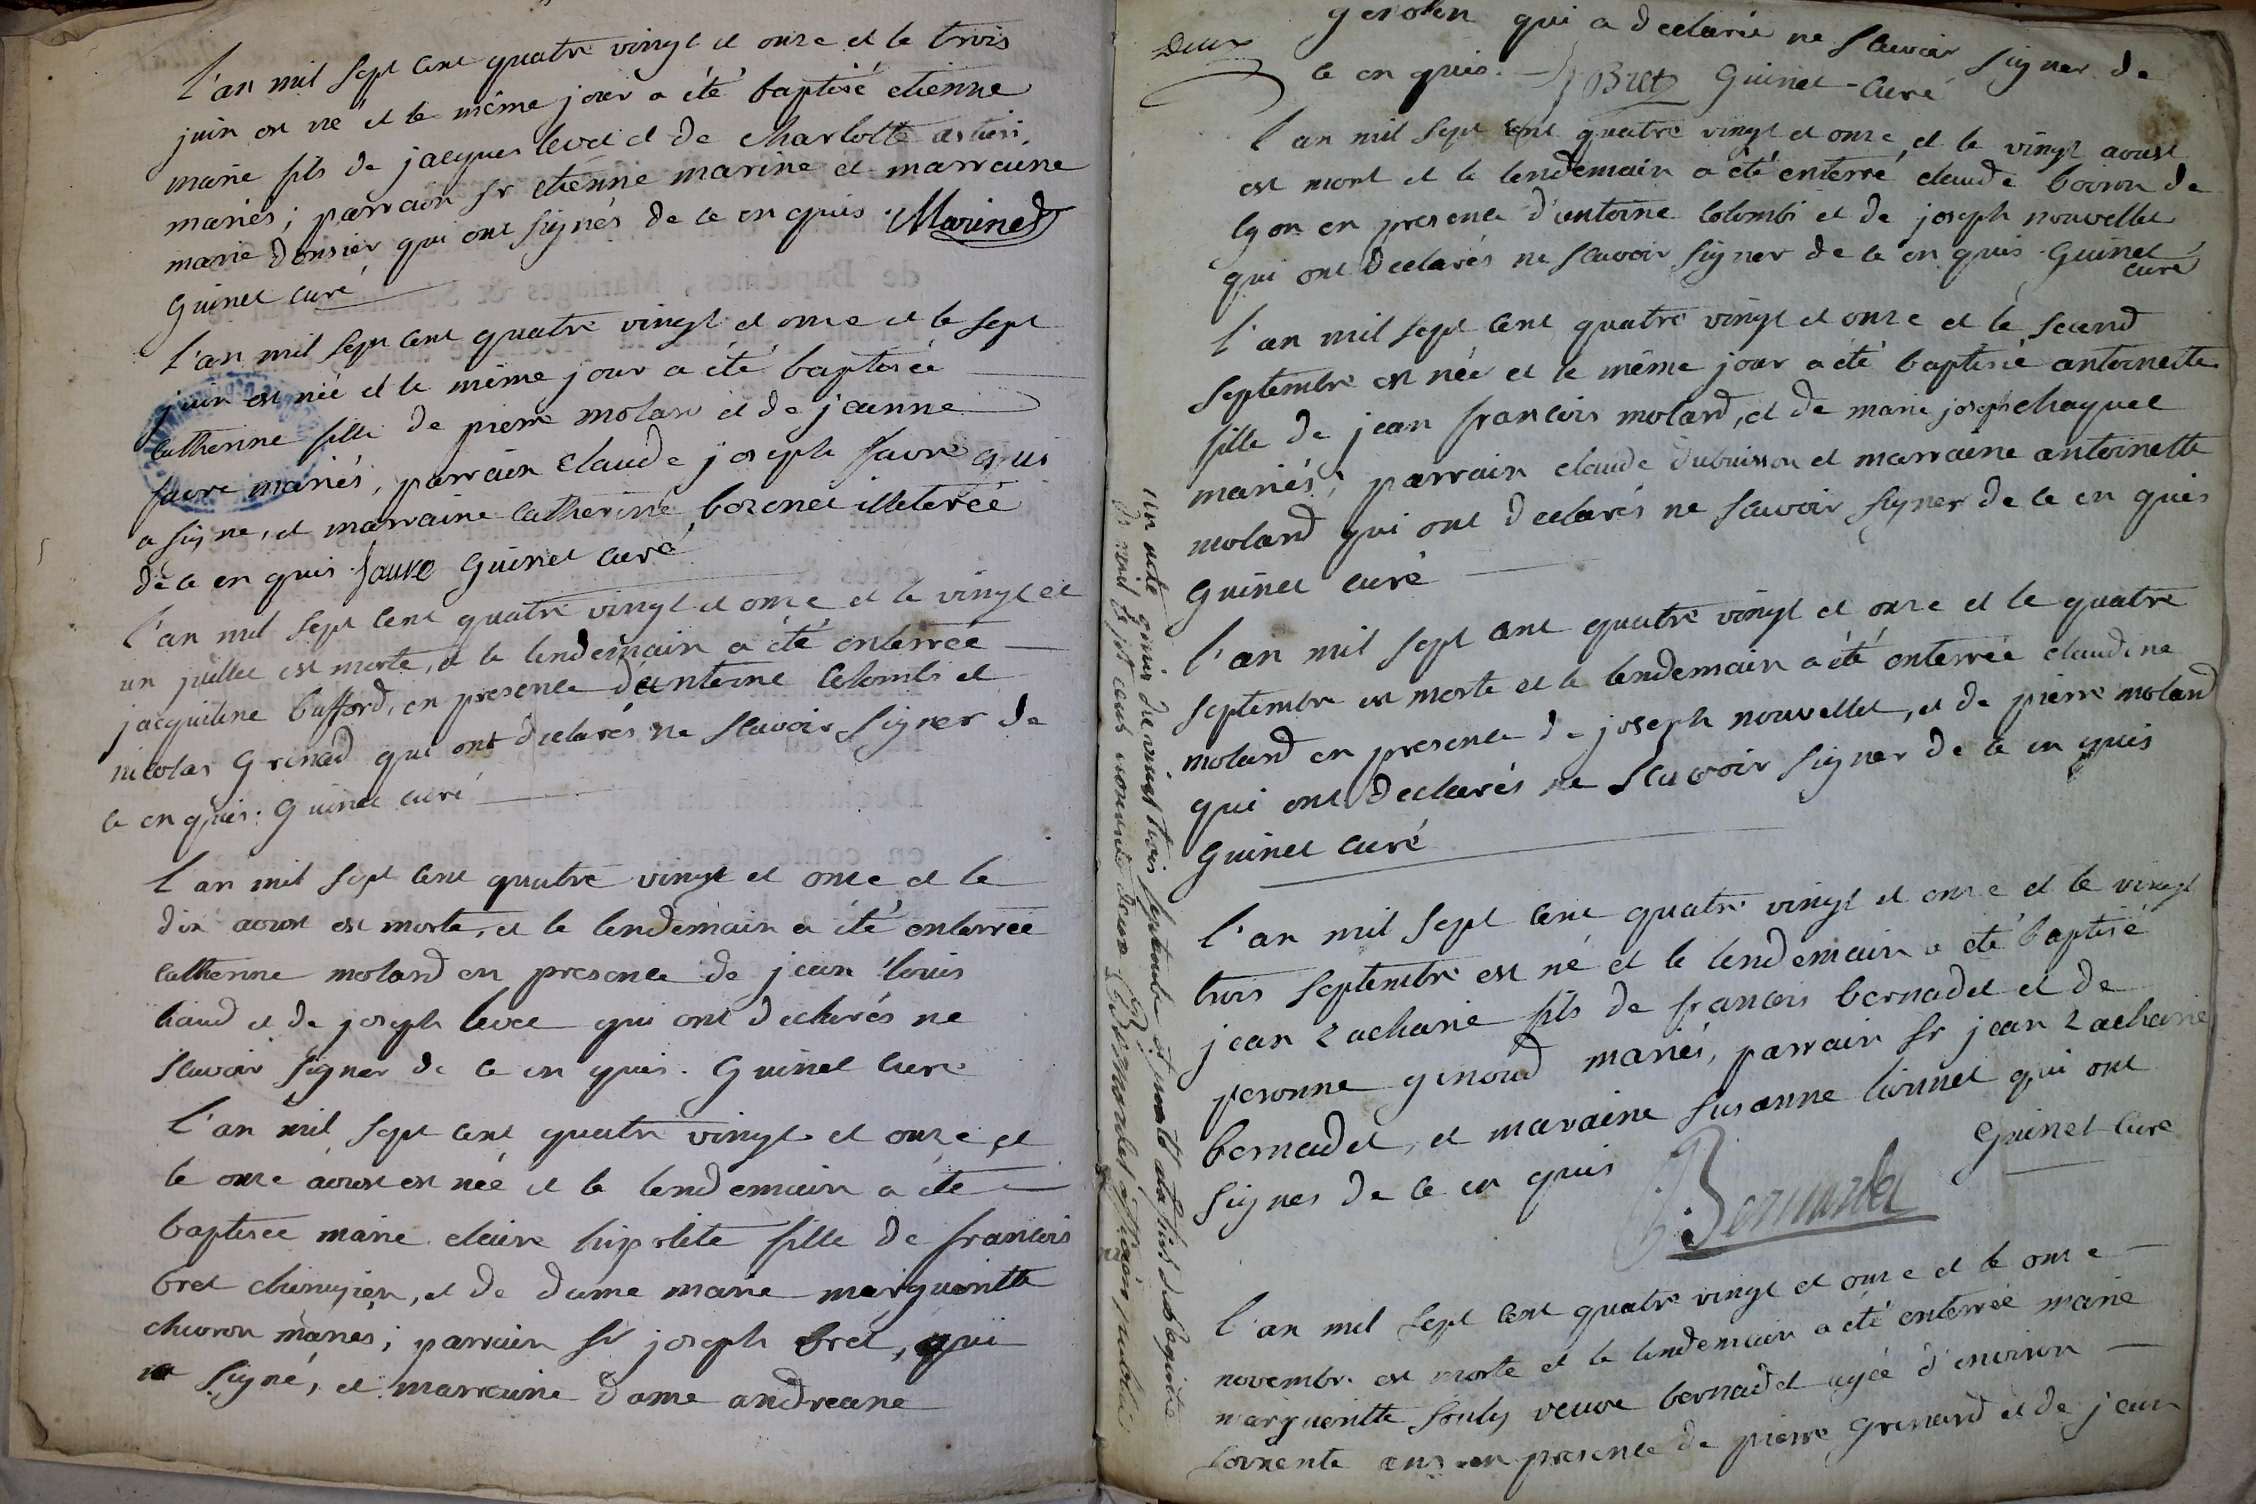 l'an mil sept cent quatre vingt et onze et le trois
juin est né et le même jour a été baptisé etienne
marie fils de jacques levet et de charlotte
mariés; parrain sr etienne marine et marraine
marie donsier qui ont signés de ce enquis. Marinet
Guinet curé
l'an mil sept cent quatre vingt et onze et le sept
juin est née et le même jour a été baptisée
catherine fille de pierre molard et de jeanne
favre mariés, parrain claude joseph favre qui
a signe, et marraine catherine bozonet illeterée
de ce enquis. favre Guinet curé
l'an mil sept cent quatre vingt et onze et le vingt et
un juillet est morte, et le lendemain a été enterrée
jacquiline buffard, en presence d'antoine colombi et
nicolas Grenad qui ont declarés ne scavoir signer de
ce enquis. Guinet curé
l'an mil sept cent quatre vingt et onze et le
dix aoust est morte, et le lendemain a été enterrée
catherine molard en presence de jean louis
et de joseph levet qui ont declarés ne
scavoir signer de ce enquis. Guinet curé
l'an mil sept cent quatre vingt et onze et
le onze aoust est née et le lendemain a été
baptisée marie claire hipolite fille de francois
bret chirurgien, et de dame marie marguerite
chavron mariés; parrain sr joseph bret, qui
a signé, et marraine dame andreane
Deux
qui a declarée ne scavoir signer de
ce enquis. Bret Guinet curé
l'an mil sept cent quatre vingt et onze et le vingt aoust
est mort et le lendemain a été enterré claude de
lyon en presence d'antoine colombi et de joseph nouvellet
qui ont declarés ne scavoir signer de ce enquis. Guinet
curé
l'an mil sept cent quatre vingt et onze et le second
septembre est née et le même jour a été baptisée antoinette
fille de jean francois molard, et de marie joseph chapuet
mariés; parrain claude dubuisson et marraine antoinette
molard qui ont declarés ne scavoir signer de ce enquis
Guinet curé
l'an mil sept cent quatre vingt et onze et le quatre
septembre est morte et le lendemain a été enterrée claudine
molard en presence de joseph nouvellet, et de pierre molard
qui ont declarés ne scavoir signer de ce enquis
Guinet curé
l'an mil sept cent quatre vingt et onze et le vingt
trois septembre est né et le lendemain a été baptisé
jean zacharie fils de francois bernadet et de
peronne ginoud mariés, parrain sr jean zacharie
bernadet, et maraine susanne lionnet qui ont
signes de ce enquis Guinet curé
Bernardet
l'an mil sept cent quatre vingt et onze et le onze
novembre est morte et le lendemain a été enterrée marie
marguerite souly veuve bernadet agée d'environ
soixente ans en presence de pierre Grenard et de jean
un acte du vingt trois septembre
mil sept cent nonante deux Bernardet officier public